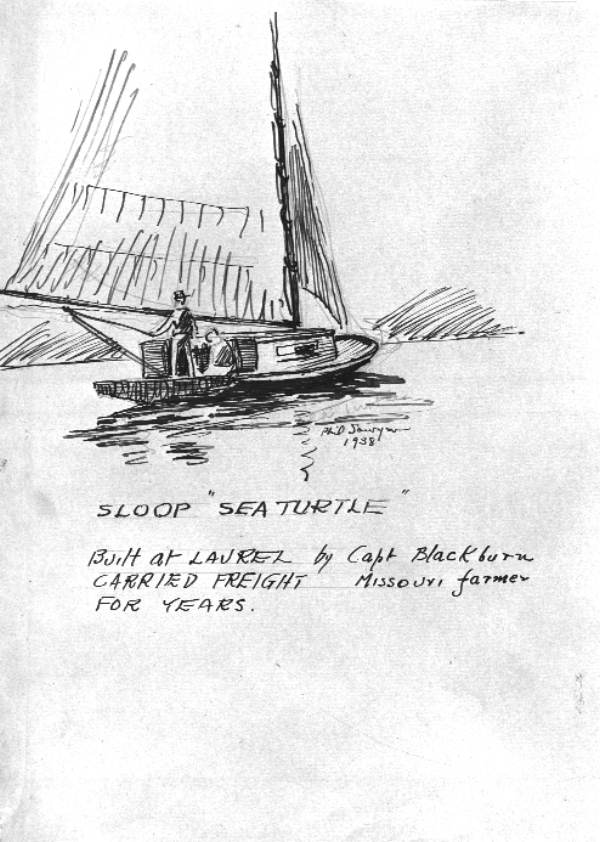 Phil Sawyer
1938
SLOOP "SEA TURTLE"
Built at LAUREL by Capt Blackburn
CARRIED FREIGHT Missouri farmer
FOR YEARS.